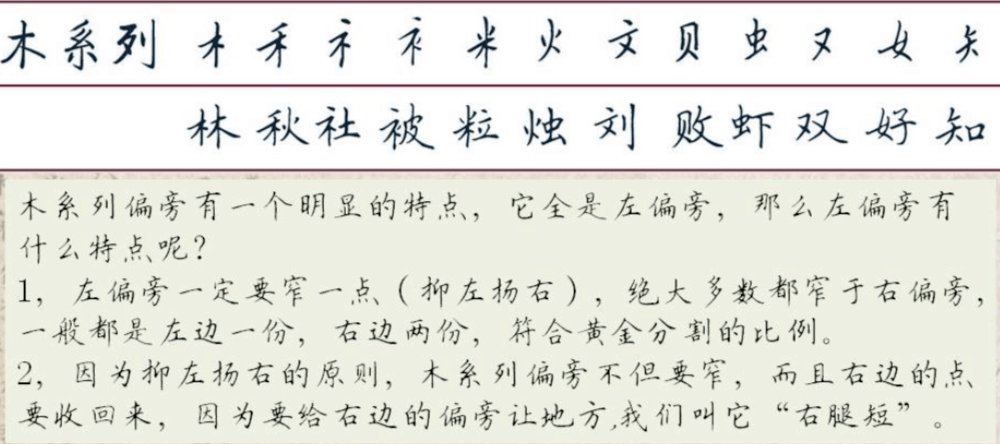 木系列 木 禾 礻 衤 米 火 文 贝 虫 又 女 矢
林 秋 社 被 粒 烛 刘 败 虾 双 好 知
木系列偏旁有一个明显的特点，它全是左偏旁，那么左偏旁有
什么特点呢？
1，左偏旁一定要窄一点（抑左扬右），绝大多数都窄于右偏旁，
一般都是左边一份，右边两份，符合黄金分割的比例。
2，因为抑左扬右的原则，木系列偏旁不但要窄，而且右边的点
要收回来，因为要给右边的偏旁让地方,我们叫它“右腿短”。